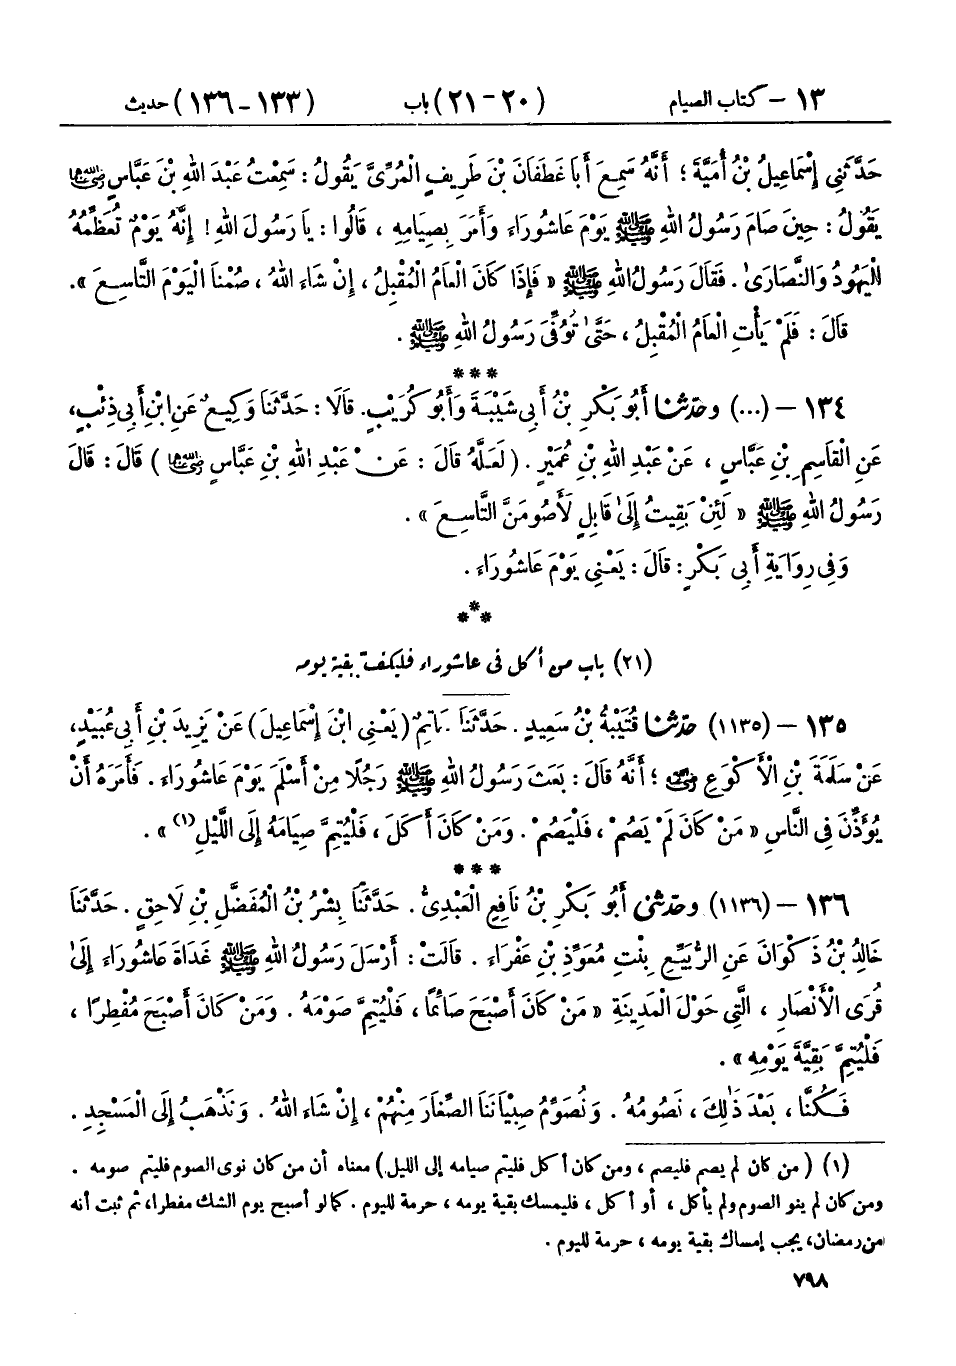 ١٣ – كتاب الصيام (٢٠ – ٢١) باب (١٣٣ – ١٣٦) حديث
حَدَّثَنِي إِسْمَاعِيلُ بْنُ أُمَيَّةَ ؛ أَنَّهُ سَمِعَ أَبَا غَطَفَانَ بْنَ طَرِيفٍ الْمُرِّيَّ يَقُولُ : سَمِعْتُ عَبْدَ اللهِ بْنَ عَبَّاسٍ رضي الله عنهما
يَقُولُ : حِينَ صَامَ رَسُولُ اللهِ ﷺ يَوْمَ عَاشُورَاءَ وَأَمَرَ بِصِيَامِهِ ، قَالُوا : يَا رَسُولَ اللهِ ! إِنَّهُ يَوْمٌ تُعَظِّمُهُ
الْيَهُودُ وَالنَّصَارَىٰ . فَقَالَ رَسُولُ اللهِ ﷺ « فَإِذَا كَانَ الْعَامُ الْمُقْبِلُ ، إِنْ شَاءَ اللهُ ، صُمْنَا الْيَوْمَ التَّاسِعَ » .
قَالَ : فَلَمْ يَأْتِ الْعَامُ الْمُقْبِلُ ، حَتَّىٰ تُوُفِّيَ رَسُولُ اللهِ ﷺ .
***
١٣٤ – (...) وحَدَّثَنَا أَبُو بَكْرِ بْنُ أَبِي شَيْبَةَ وَأَبُو كُرَيْبٍ. قَالَا : حَدَّثَنَا وَكِيعٌ عَنِ ابْنِ أَبِي ذِئْبٍ ،
عَنِ الْقَاسِمِ بْنِ عَبَّاسٍ ، عَنْ عَبْدِ اللهِ بْنِ عُمَيْرٍ . ( لَعَلَّهُ قَالَ : عَنْ عَبْدِ اللهِ بْنِ عَبَّاسٍ رضي الله عنهما ) قَالَ : قَالَ
رَسُولُ اللهِ ﷺ « لَئِنْ بَقِيتُ إِلَىٰ قَابِلٍ لَأَصُومَنَّ التَّاسِعَ » .
وَفِي رِوَايَةِ أَبِي بَكْرٍ : قَالَ : يَعْنِي يَوْمَ عَاشُورَاءَ .
***
(٢١) باب من أكل في عاشوراء فليكف بقية يومه
١٣٥ – (١١٣٥) حَدَّثَنَا قُتَيْبَةُ بْنُ سَعِيدٍ . حَدَّثَنَا حَاتِمٌ ( يَعْنِي ابْنَ إِسْمَاعِيلَ ) عَنْ يَزِيدَ بْنِ أَبِي عُبَيْدٍ ،
عَنْ سَلَمَةَ بْنِ الْأَكْوَعِ رضي الله عنه ؛ أَنَّهُ قَالَ : بَعَثَ رَسُولُ اللهِ ﷺ رَجُلًا مِنْ أَسْلَمَ يَوْمَ عَاشُورَاءَ . فَأَمَرَهُ أَنْ
يُؤَذِّنَ فِي النَّاسِ « مَنْ كَانَ لَمْ يَصُمْ ، فَلْيَصُمْ . وَمَنْ كَانَ أَكَلَ ، فَلْيُتِمَّ صِيَامَهُ إِلَى اللَّيْلِ (١) » .
***
١٣٦ – (١١٣٦) وحَدَّثَنِي أَبُو بَكْرِ بْنُ نَافِعٍ الْعَبْدِيُّ . حَدَّثَنَا بِشْرُ بْنُ الْمُفَضَّلِ بْنِ لَاحِقٍ . حَدَّثَنَا
خَالِدُ بْنُ ذَكْوَانَ عَنِ الرُّبَيِّعِ بِنْتِ مُعَوِّذِ بْنِ عَفْرَاءَ . قَالَتْ : أَرْسَلَ رَسُولُ اللهِ ﷺ غَدَاةَ عَاشُورَاءَ إِلَىٰ
قُرَى الْأَنْصَارِ ، الَّتِي حَوْلَ الْمَدِينَةِ « مَنْ كَانَ أَصْبَحَ صَائِمًا ، فَلْيُتِمَّ صَوْمَهُ . وَمَنْ كَانَ أَصْبَحَ مُفْطِرًا ،
فَلْيُتِمَّ بَقِيَّةَ يَوْمِهِ » .
فَكُنَّا ، بَعْدَ ذَٰلِكَ ، نَصُومُهُ . وَنُصَوِّمُ صِبْيَانَنَا الصِّغَارَ مِنْهُمْ ، إِنْ شَاءَ اللهُ . وَنَذْهَبُ إِلَى الْمَسْجِدِ .
(١) ( من كان لم يصم فليصم ، ومن كان أكل فليتم صيامه إلى الليل ) معناه أن من كان نوى الصوم فليتم صومه .
ومن كان لم ينو الصوم ولم يأكل ، أو أكل ، فليمسك بقية يومه ، حرمة لليوم . كما لو أصبح يوم الشك مفطرا ، ثم ثبت أنه
من رمضان ، يجب إمساك بقية يومه ، حرمة لليوم .
٧٩٨